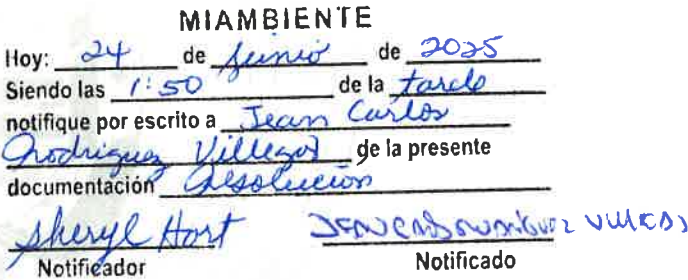 MIAMBIENTE
Hoy: 24 de Junio de 2025
Siendo las 1:50 de la tarde
notifique por escrito a Jean Carlos
Rodriguez Villegas de la presente
documentación Resolución
Sheryl Hort JEAN CARLOS RODRIGUEZ VILLEGAS
Notificador Notificado